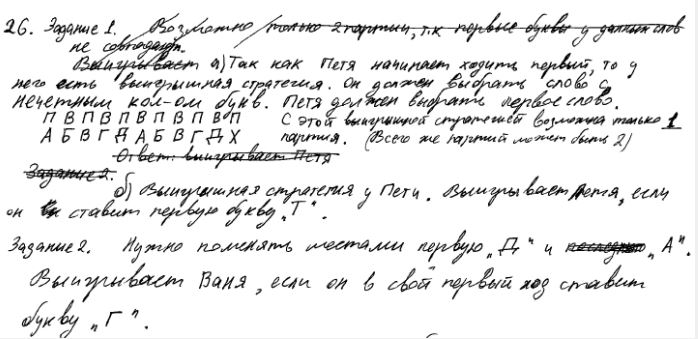 26. Задание 1. Возможно только 2 партии, т.к первые буквы у данных слов
не совпадают.
Выигрывает а) Так как Петя начинает ходить первый, то у
него есть выигрышная стратегия. Он должен выбрать слово с
нечетным кол-ом букв. Петя должен выбрать первое слово.
П В П В П В П В П В П С этой выигрышной стратегией возможна только 1
А Б В Г Д А Б В Г Д Х партия. (Всего же партий может быть 2)
Ответ: выигрывает Петя
Задание 2.
б) Выигрышная стратегия у Пети. Выигрывает Петя, если
он ставит первую букву „Т".
Задание 2. Нужно поменять местами первую „Д" и „А".
Выигрывает Ваня, если он в свой первый ход ставит
букву „Г".